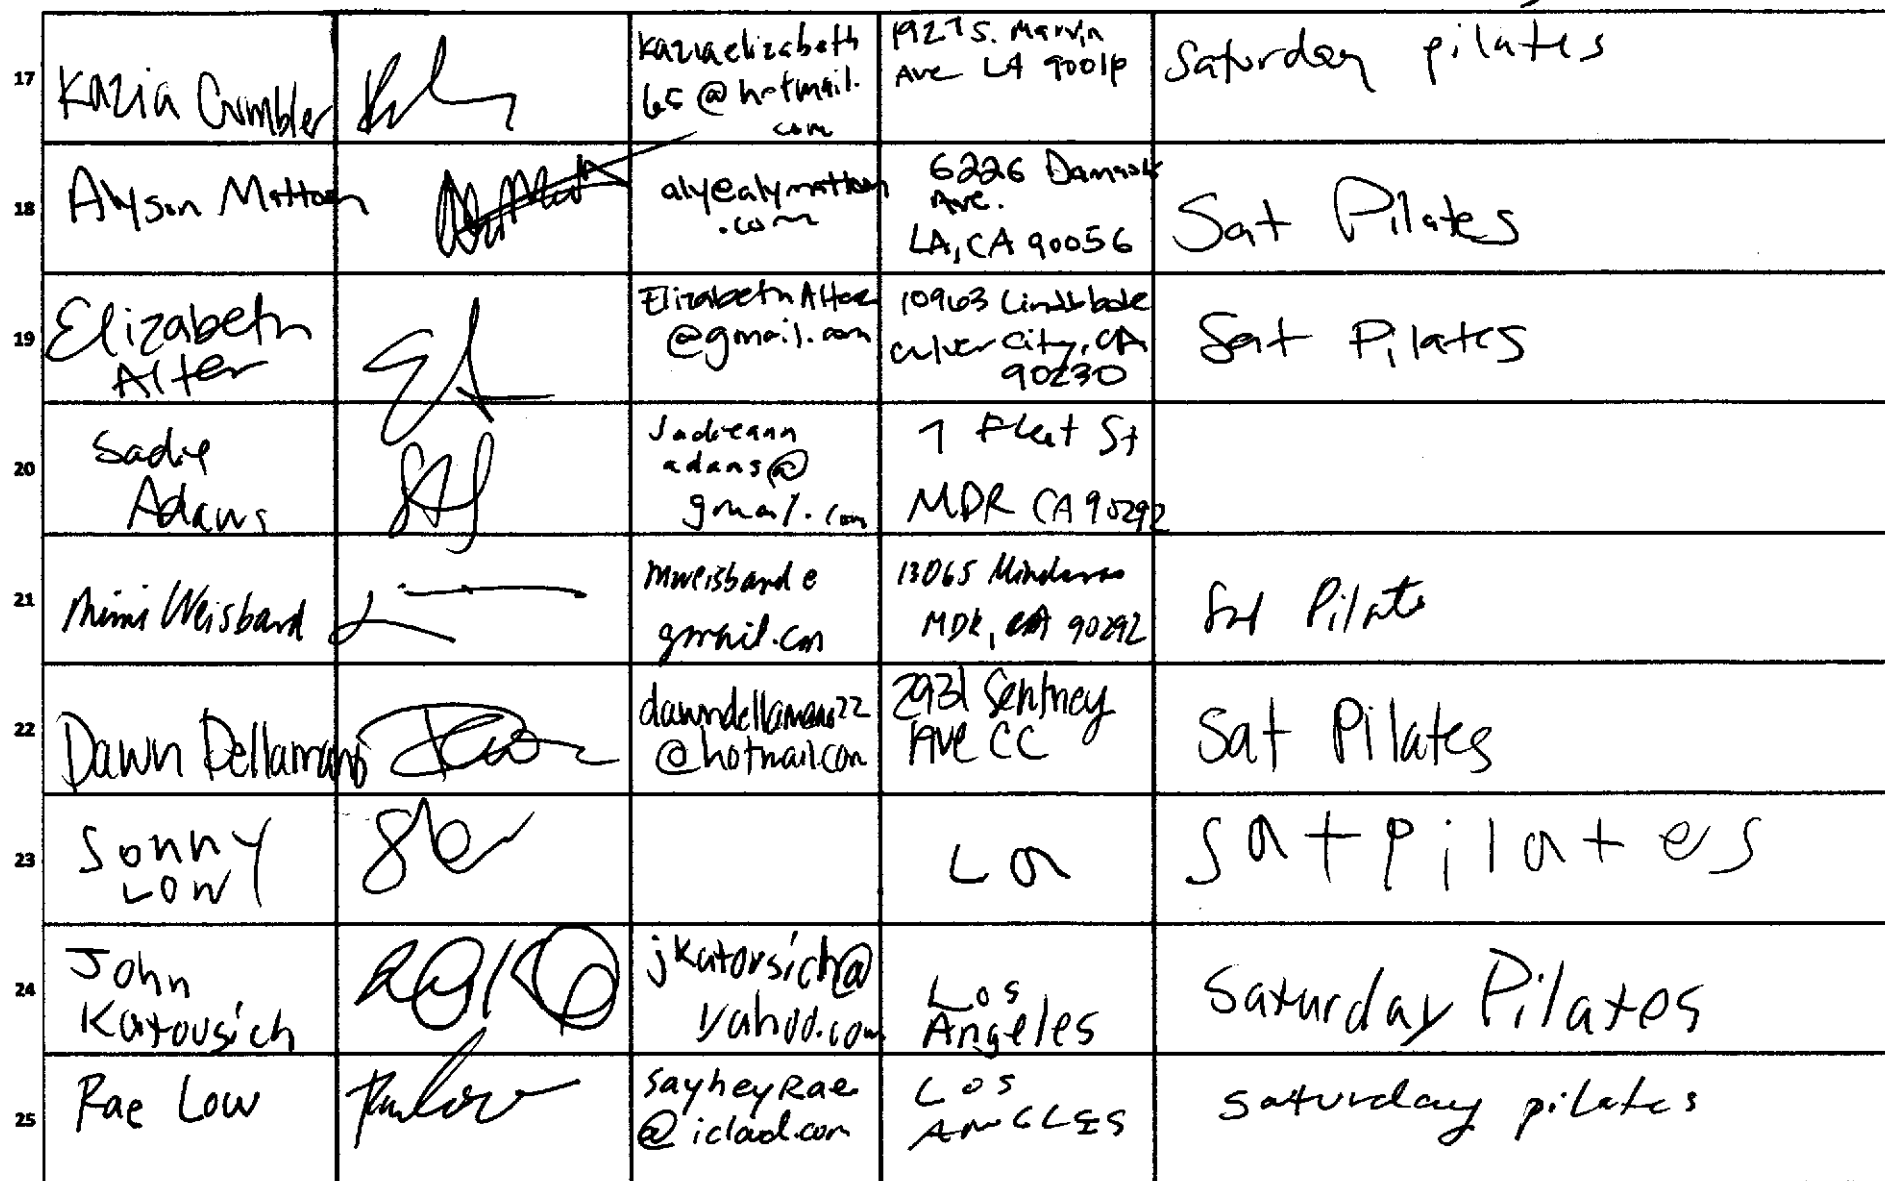 17
Kazia Crumbler
kaziaelizabeth
65@hotmail.
com
1927 S. Marvin
Ave LA 90016
Saturday pilates
18
Alyson Mattoon
aly@alymattoon
.com
6226 Damask
Ave.
LA, CA 90056
Sat Pilates
19
Elizabeth
Alter
ElizabethAlter
@gmail.com
10963 Lindblade
Culver City, CA
90230
Sat Pilates
20
Sadie
Adams
sadieann
adams@
gmail.com
7 Fleet St
MDR CA 90292
21
Mimi Weisband
mweisband@
gmail.com
13065 Mindanao
MDR, CA 90292
Sat Pilates
22
Dawn Dellamano
dawndellamano22
@hotmail.com
2931 Sentney
Ave CC
Sat Pilates
23
Sonny
Low
La
Sat pilates
24
John
Katovsich
jkatovsich@
yahoo.com
Los
Angeles
Saturday Pilates
25
Rae Low
sayheyRae
@icloud.com
LOS
ANGLES
saturday pilates